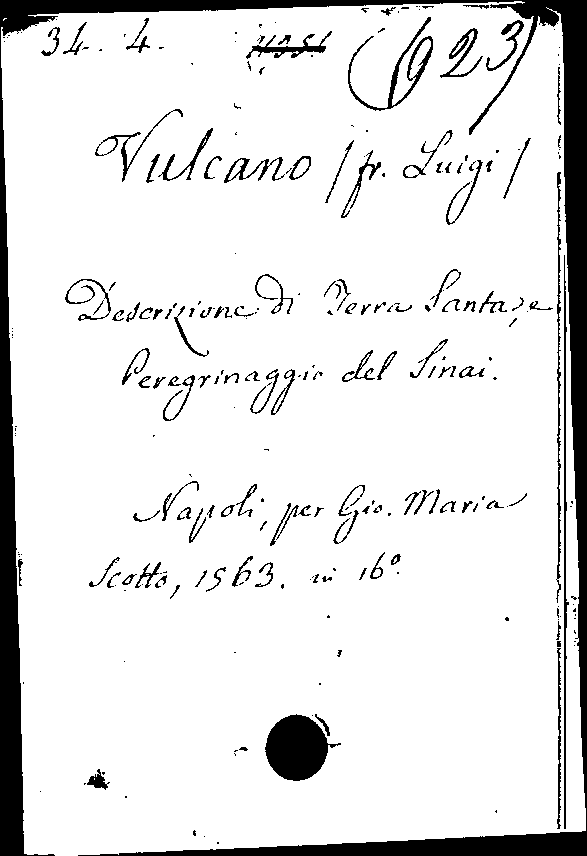 34. 4. (923)
Vulcano / fr. Luigi /
Descrizione di Terra Santa, e
Peregrinaggio del Sinai.
Napoli, per Gio. Maria
Scotto, 1563. in 16°.